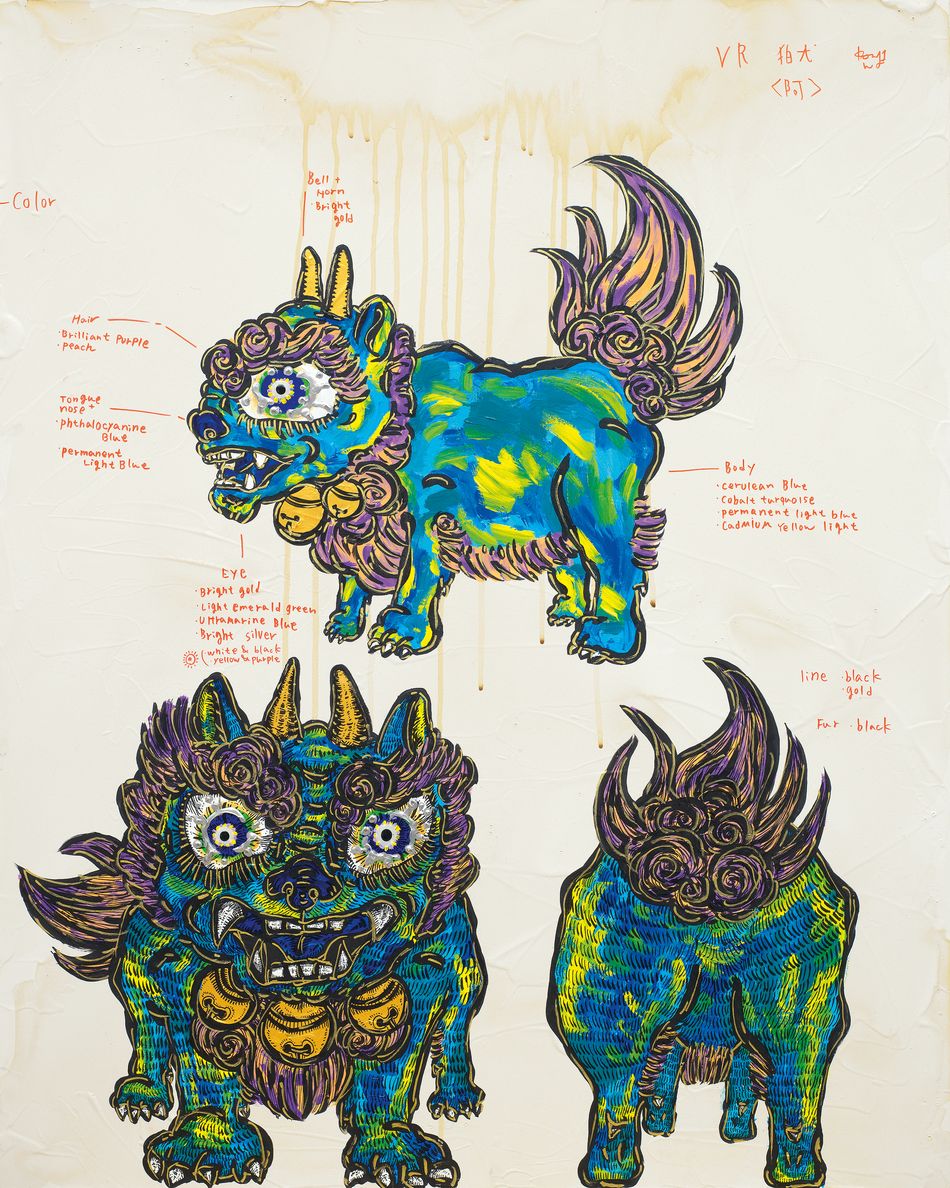 VR 狛犬
〈阿〉
Color
Bell +
Horn
・Bright
gold
Hair
・Brilliant Purple
・peach
Tongue
nose +
・phthalocyanine
Blue
・permanent
Light Blue
Body
・cerulean Blue
・cobalt turquoise
・permanent light blue
・cadmium yellow light
EYE
・Bright gold
・Light emerald green
・Ultramarine Blue
・Bright silver
(white & black
yellow & purple
line ・black
・gold
Fur ・black